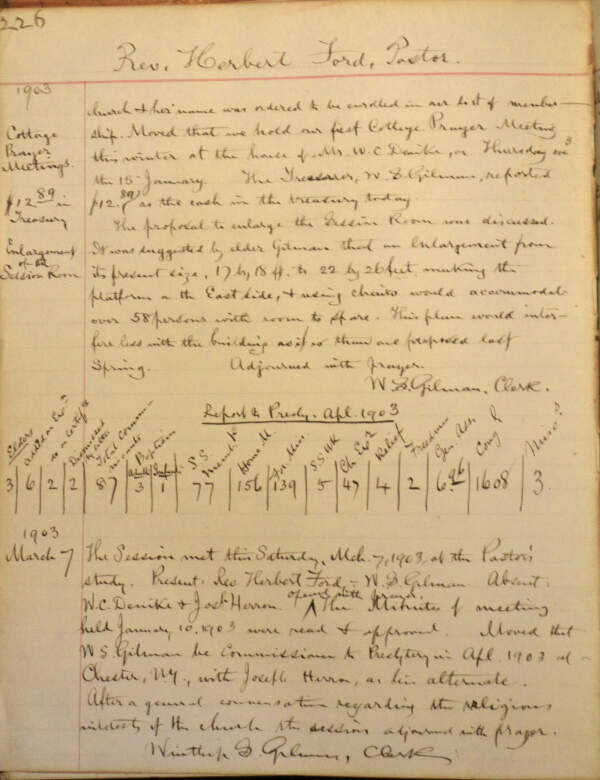 226
Rev. Herbert Ford, Pastor.
1903
church & her name was ordered to be enrolled in our list of member-
ship. Moved that we hold our first Cottage Prayer Meeting
this winter at the house of Mr. W. C. Denike, on Thursday eve
the 15 January. The Treasurer, W. S. Gilman, reported
$12.89 as the cash in the treasury today.
Cottage
Prayer
Meetings.
$12 89 in
Treasury
Enlargement
of the
Session Room
The proposal to enlarge the Session Room was discussed.
It was suggested by elder Gilman that an enlargement from
its present size, 17 by 18 ft. to 22 by 26 feet, making the
platform on the East side, & using chairs would accommodate
over 58 persons with room to spare. This plan would inter-
fere less with the building as it is than one proposed last
Spring. Adjourned with prayer.
W. S. Gilman, Clerk.
Report to Presby. Apl. 1903
Elders added on Exn on certificate Dismissed by letter Total Communicants Baptism Adults Infants S.S. Memb. Home M. For. Miss. S.S. Wk Ch. Ecn Relief Freedmen Gen. Ass. Cong'l Misc's
3 6 2 2 87 3 1 77 156 139 5 47 4 2 6.96 1608 3.
1903
March 7
The Session met this Saturday, Mch. 7, 1903, at the Pastor's
study. Present: Rev. Herbert Ford, - W. S. Gilman. Absent:
opened with prayer.
W. C. Denike & Josh Herron. The Minutes of meeting
held January 10, 1903 were read & approved. Moved that
W S. Gilman be Commissioner to Presbytery in Apl. 1903 at
Chester, N.Y., with Joseph Herron, as his alternate.
After a general conversation regarding the religious
interests of the church the session adjourned with prayer.
Winthrop S. Gilman, Clerk